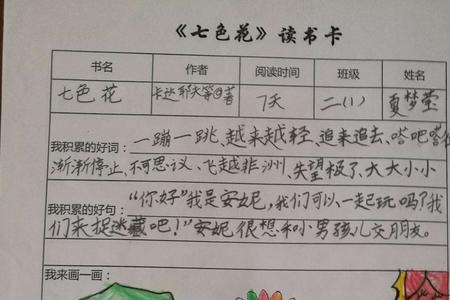 《七色花》读书卡
书名 作者 阅读时间 班级 姓名
七色花 卡达耶夫等著 7天 二(1) 夏梦莹
我积累的好词：一蹦一跳、越来越轻、追来追去、嗒吧嗒
渐渐停止、不可思议、飞越非洲、失望极了、大大小小
我积累的好句：“你好”我是安妮，我们可以一起玩吗？我
们来捉迷藏吧！”安妮很想和小男孩儿交朋友。
我来画一画：